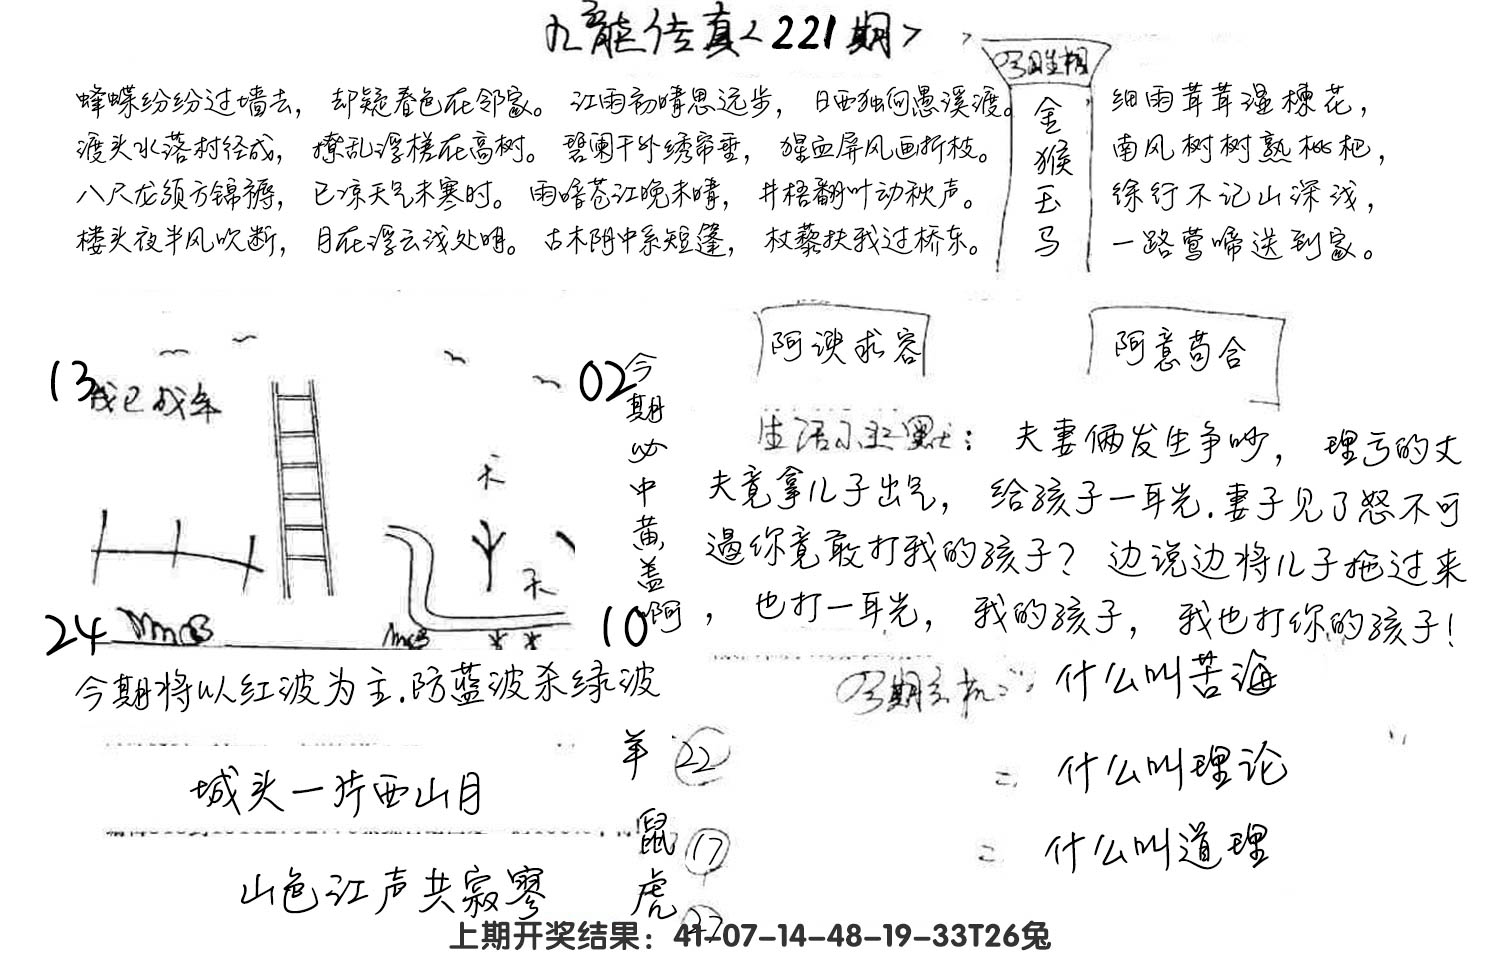 九龙传真<221期>
今日生相
金猴玉马
蜂蝶纷纷过墙去，却疑春色在邻家。江雨初晴思远步，日西独何愚溪渡。
渡头水落村径成，撩乱浮槎在高树。碧阑干外绣帘垂，猩血屏风画折枝。
八尺龙须方锦褥，已凉天气未寒时。雨暗苍江晚未晴，井梧翻叶动秋声。
楼头夜半风吹断，月在浮云浅处明。古木阴中系短篷，杖藜扶我过桥东。
细雨茸茸湿楝花，
南风树树熟枇杷，
徐行不记山深浅，
一路莺啼送到家。
13
02
24
10
今期必中黄盖啊
阿谀求容
阿意苟合
夫妻俩发生争吵，理亏的丈
夫竟拿儿子出气，给孩子一耳光.妻子见了怒不可
遏你竟敢打我的孩子？边说边将儿子拖过来
，也打一耳光，我的孩子，我也打你的孩子！
今期将以红波为主.防蓝波杀绿波
城头一片西山月
山色江声共寂寥
羊 22
鼠 17
虎
什么叫苦海
二 什么叫理论
二 什么叫道理
上期开奖结果：41-07-14-48-19-33T26兔